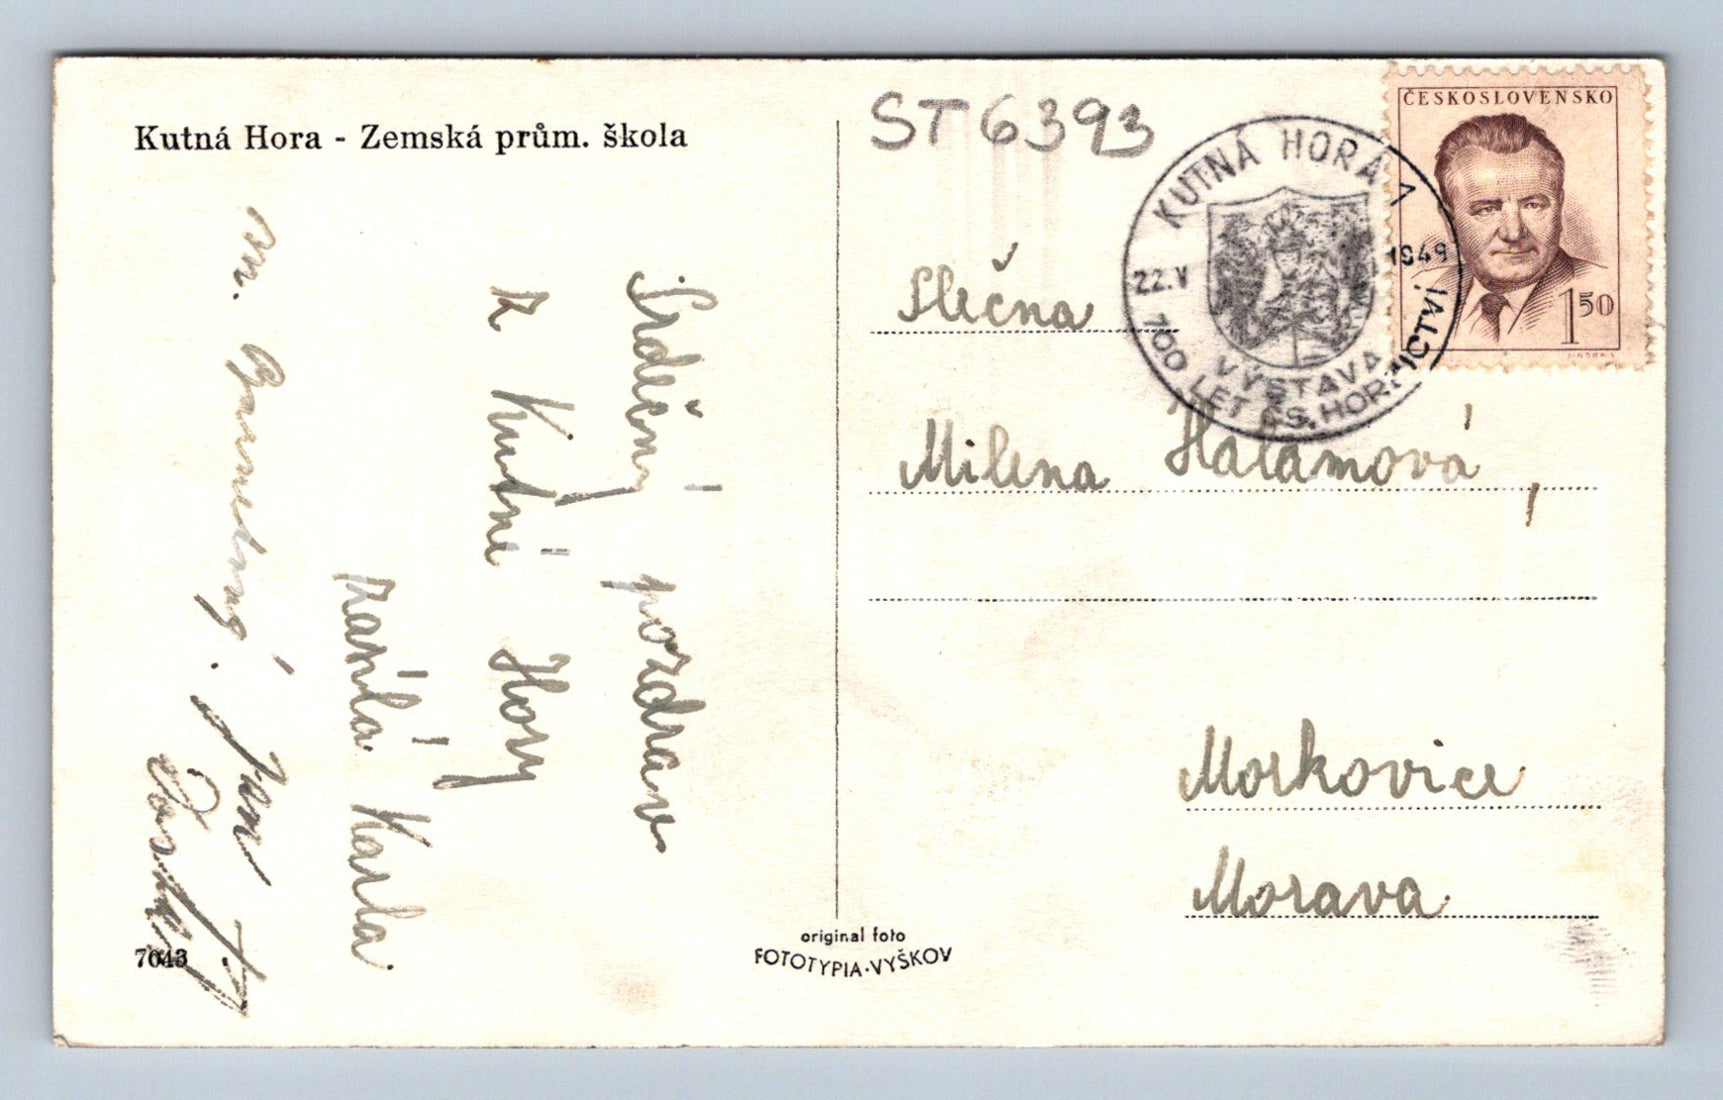 Kutná Hora - Zemská prům. škola
ST 6393
ČESKOSLOVENSKO
1 50
KUTNÁ HORA 1
22.V 1949
VÝSTAVA
700 LET ČS. HORNICTVÍ
Srdečný pozdrav
z Kutné Hory
Karla
Slečna
Milena Halamová,
Morkovice
Morava
7043
original foto
FOTOTYPIA-VYŠKOV